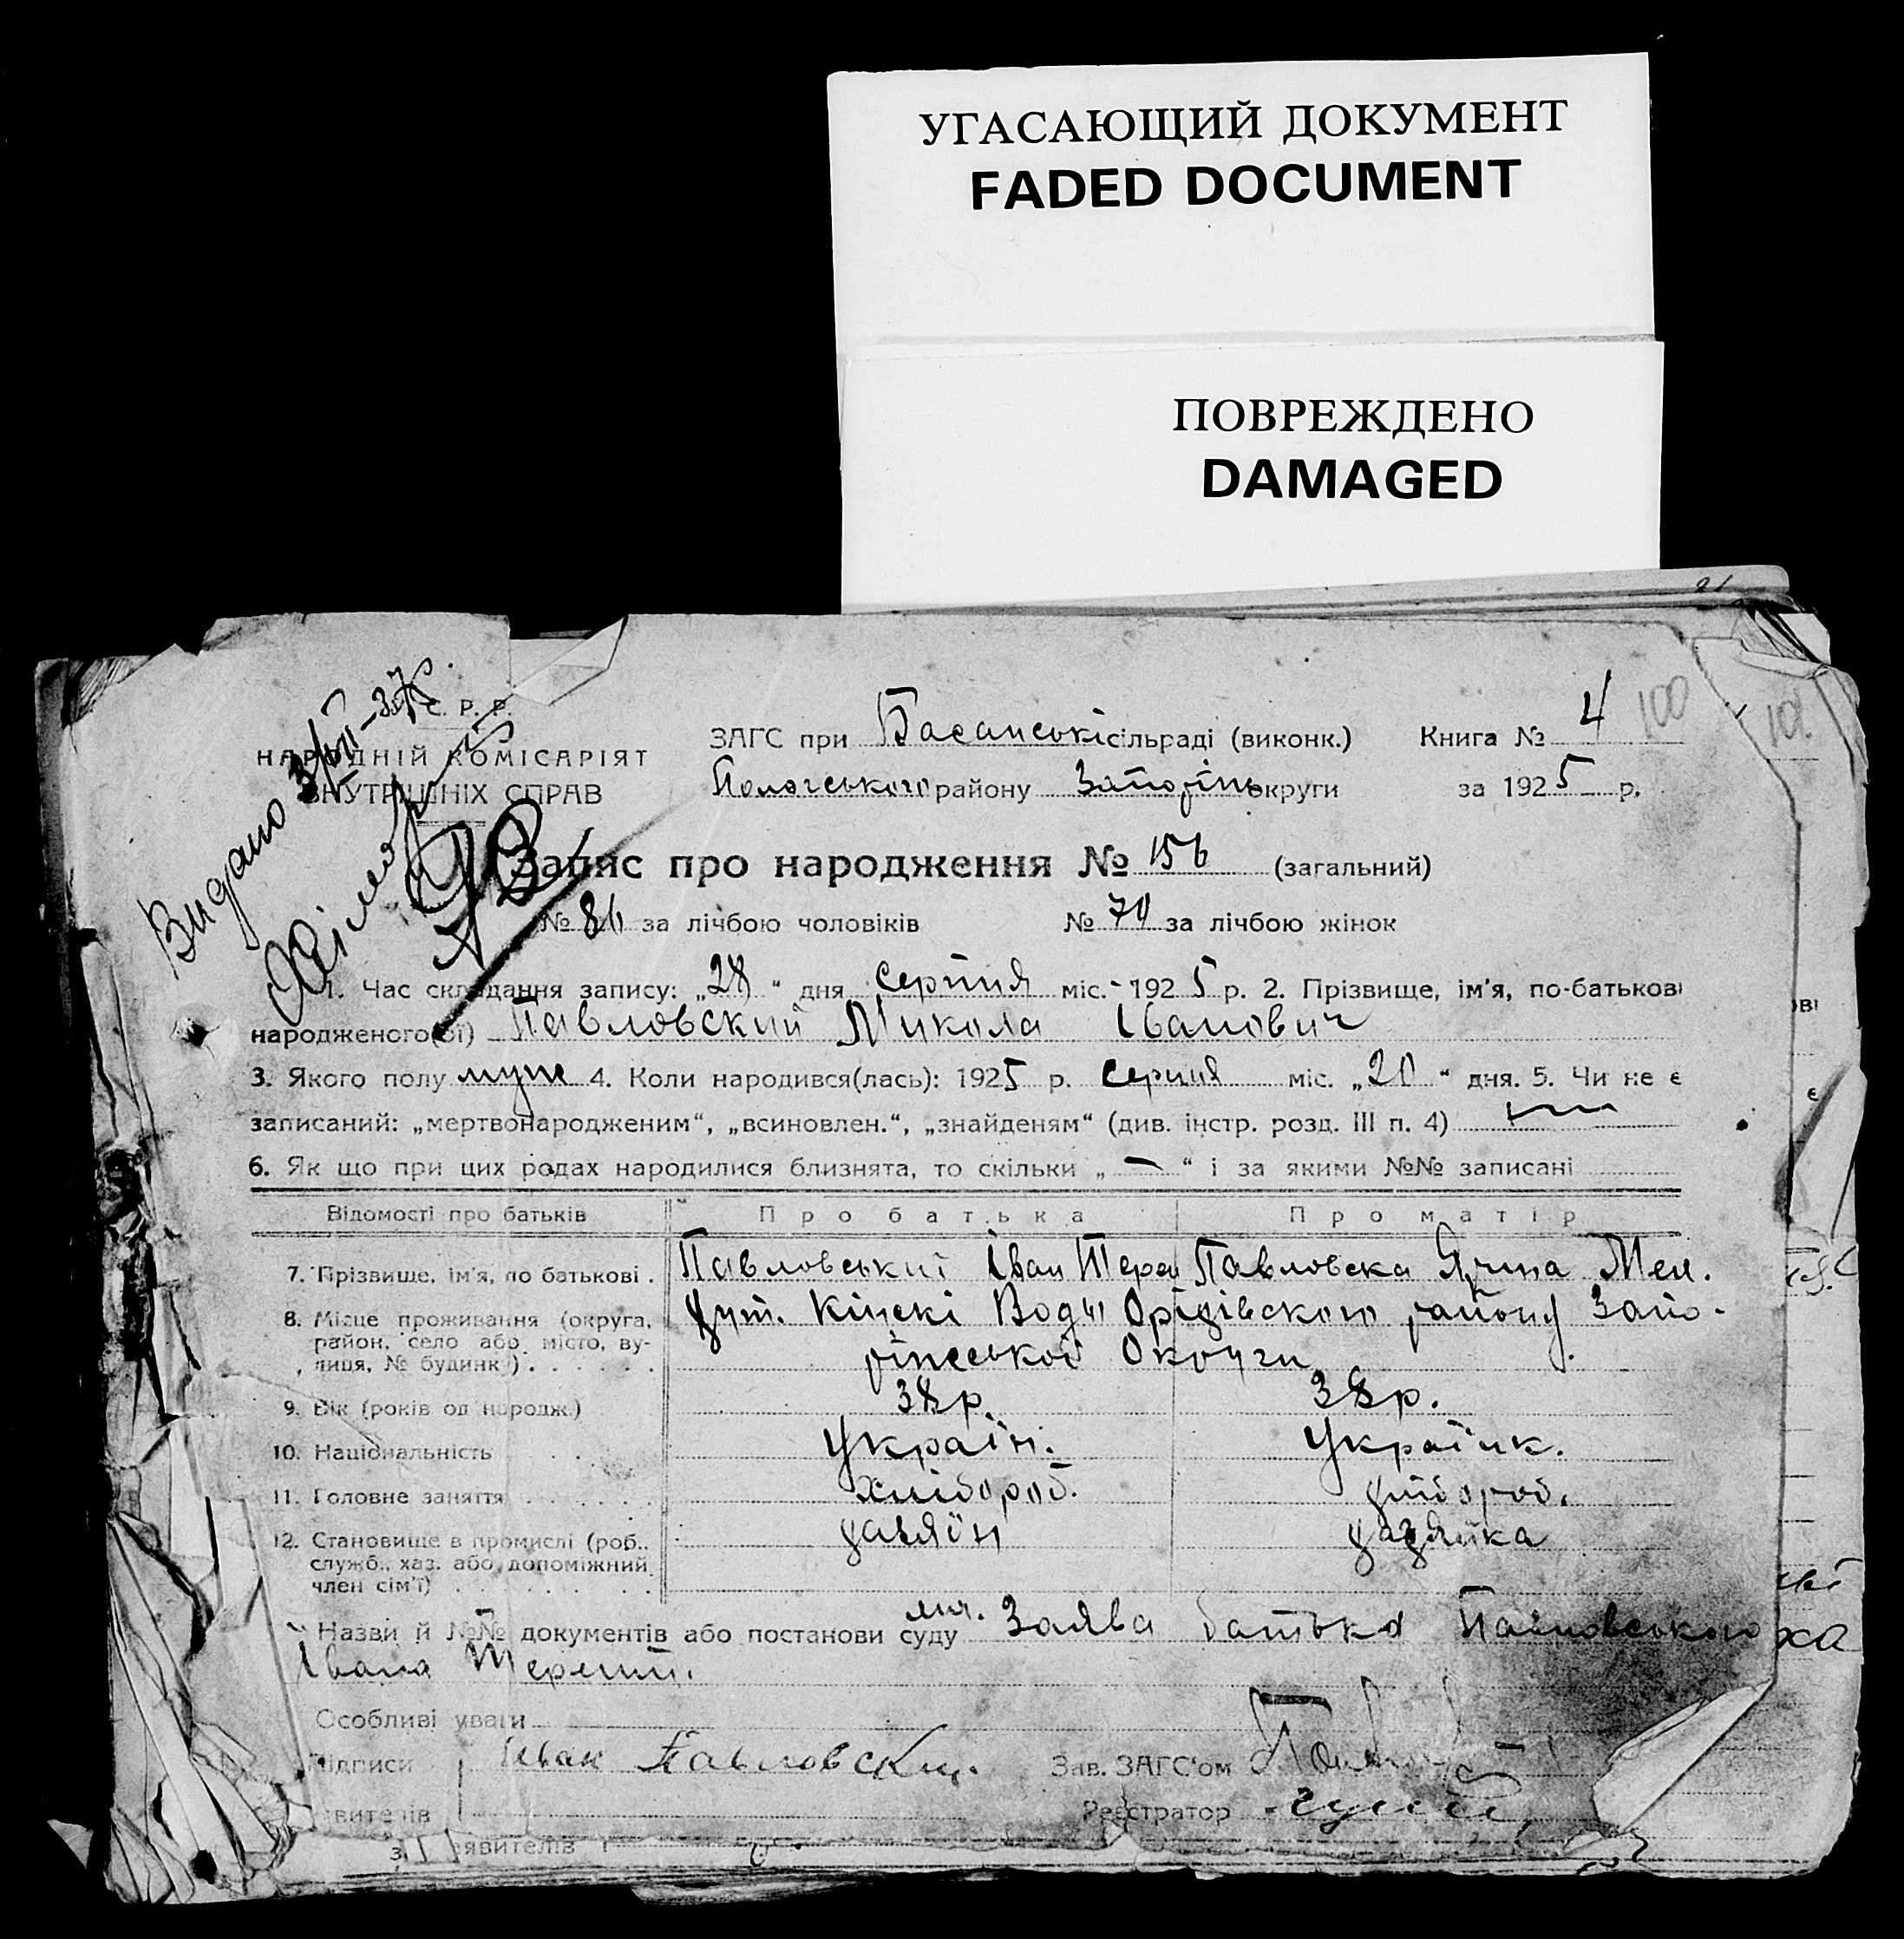 УГАСАЮЩИЙ ДОКУМЕНТ
FADED DOCUMENT
ПОВРЕЖДЕНО
DAMAGED
С. Р. Р.
НАРОДНІЙ КОМІСАРІЯТ
ВНУТРІШНІХ СПРАВ
Видано
ЗАГС при Басанські сільраді (виконк.) Книга № 4 100
Пологського району Запоріж округи за 1925 р.
Запис про народження № 156 (загальний)
№ 86 за лічбою чоловіків № 70 за лічбою жінок
1. Час складання запису: „28“ дня серпня міс. 1925 р. 2. Прізвище, ім'я, по-батькові
народженого(ої) Павловский Микола Іванович
3. Якого полу муж 4. Коли народився(лась): 1925 р. серпня міс. „20“ дня. 5. Чи не є
записаний: „мертвонародженим“, „всиновлен.“, „знайденям“ (див. інстр. розд. III п. 4)
6. Як що при цих родах народилися близнята, то скільки „—“ і за якими №№ записані
Відомості про батьків Про батька Про матір
7. Прізвище, ім'я, по батькові . Павловський Іван Тере Павловска Ярина Мел.
8. Місце проживання (округа, район, село або місто, вулиця, № будинк.) . . . . . . хут. Кінскі Води Оріхівского району Запоріжської Округи
9. Вік (років од народж.) 38 р. 38 р.
10. Національність . . . . . Україн. Українк.
11. Головне заняття . . . . . хлібороб. хлібороб.
12. Становище в промислі (роб., служб., хаз. або допоміжний член сім'ї) . . . . . . . . хазяїн хазяйка
Назви й №№ документів або постанови суду Заява батька Павловського
Івана Терент.
Особливі уваги
Підписи Іван Павловский. Зав. ЗАГС'ом
явителів Реєстратор
явителів